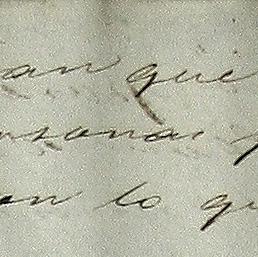 an que
rsonas
on lo qu